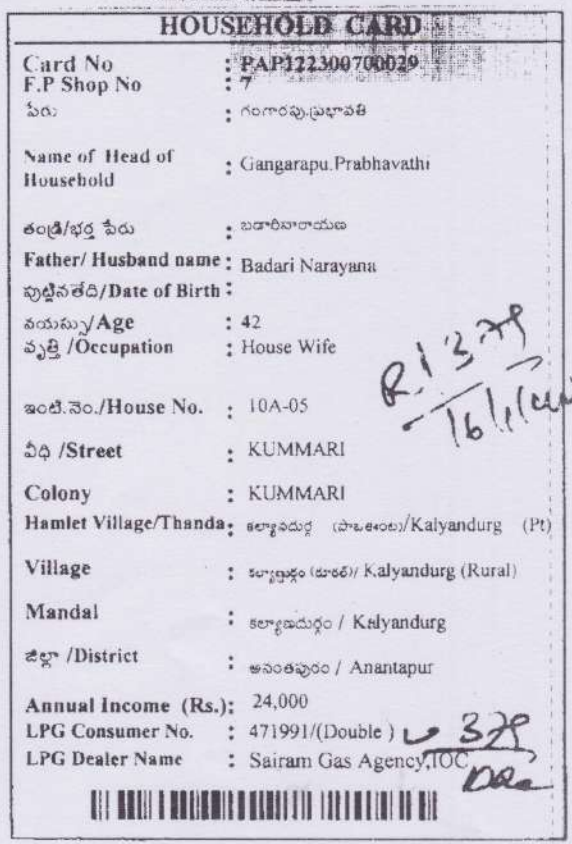 HOUSEHOLD CARD
Card No : PAP122300700029
F.P Shop No : 7
పేరు : గంగారపు.ప్రభావతి
Name of Head of Household : Gangarapu.Prabhavathi
తండ్రి/భర్త పేరు : బదారినారాయణ
Father/ Husband name : Badari Narayana
పుట్టినతేది/Date of Birth :
వయస్సు/Age : 42
వృత్తి /Occupation : House Wife
ఇంటి.నెం./House No. : 10A-05
వీధి /Street : KUMMARI
Colony : KUMMARI
Hamlet Village/Thanda : /Kalyandurg (Pt)
Village : కళ్యాణదుర్గం (రూరల్)/ Kalyandurg (Rural)
Mandal : కల్యాణదుర్గం / Kalyandurg
జిల్లా /District : అనంతపురం / Anantapur
Annual Income (Rs.): 24,000
LPG Consumer No. : 471991/(Double )
379
LPG Dealer Name : Sairam Gas Agency,IOC